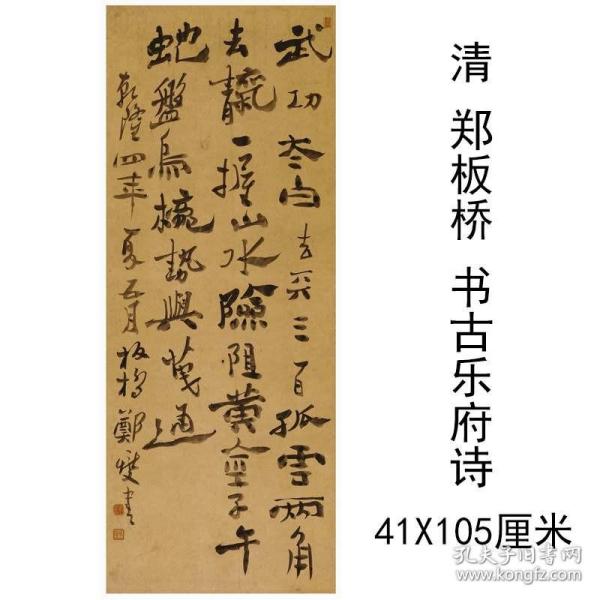 武功夳白去兲三百孤雲兩角
去靝一握山水險阻黃金子午
虵盤烏櫳勢與通
乾隆四年夏五月板橋鄭燮書
清 郑板桥 书古乐府诗
41X105厘米
孔夫子旧书网
www.kongfz.com